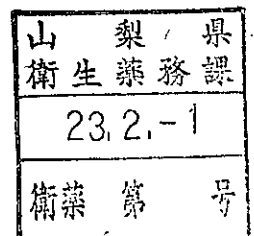 山梨県
衛生薬務課
23.2.-1
衛薬第　号